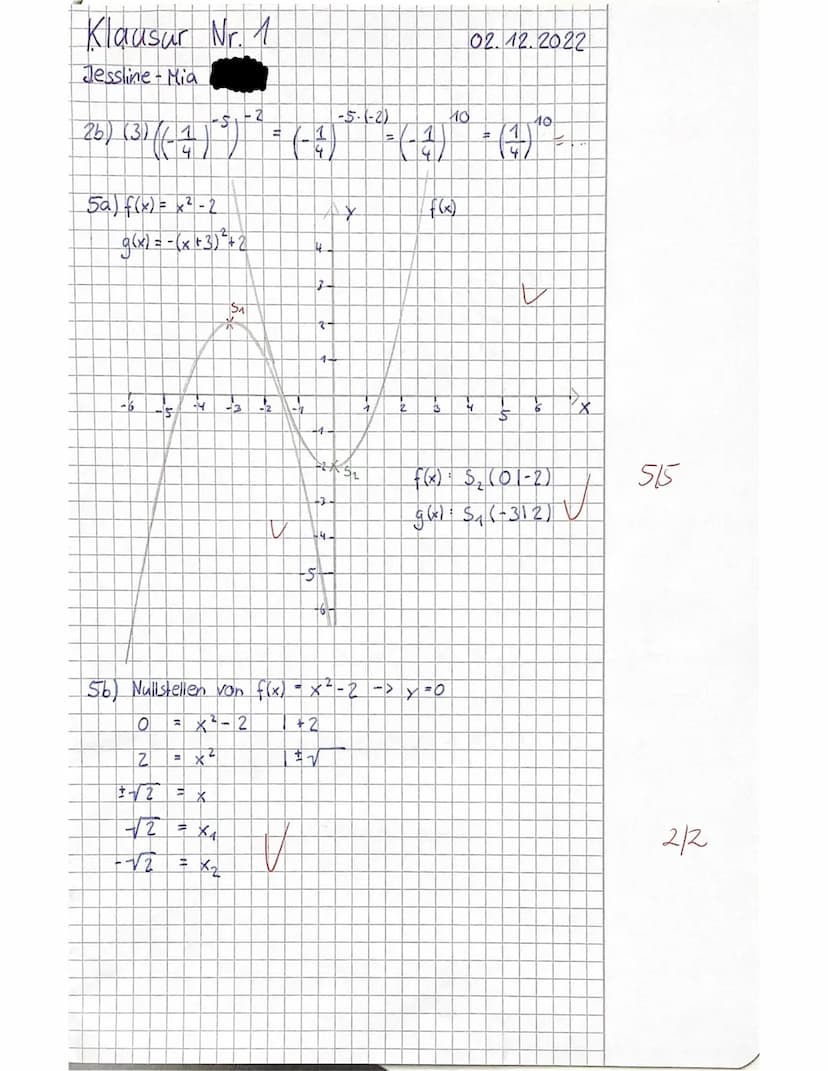 Klausur Nr. 1 02.12.2022
Jessline-Mia
2b) (3) ((-1/4)^-5)^-2 = (-1/4)^-5·(-2) = (-1/4)^10 = (1/4)^10 = ...
5a) f(x) = x² - 2
g(x) = -(x+3)² + 2
y f(x)
4
3
S₁
2
1
-6 -5 -4 -3 -2 -1 1 2 3 4 5 6 x
-1
-2 S₂
f(x): S₂ (0|-2) 5/5
-3
g(x): S₁ (-3|2)
-4
-5
-6
5b) Nullstellen von f(x) = x² - 2 -> y = 0
0 = x² - 2 | +2
2 = x² | ±√
±√2 = x
√2 = x₁ 2/2
-√2 = x₂